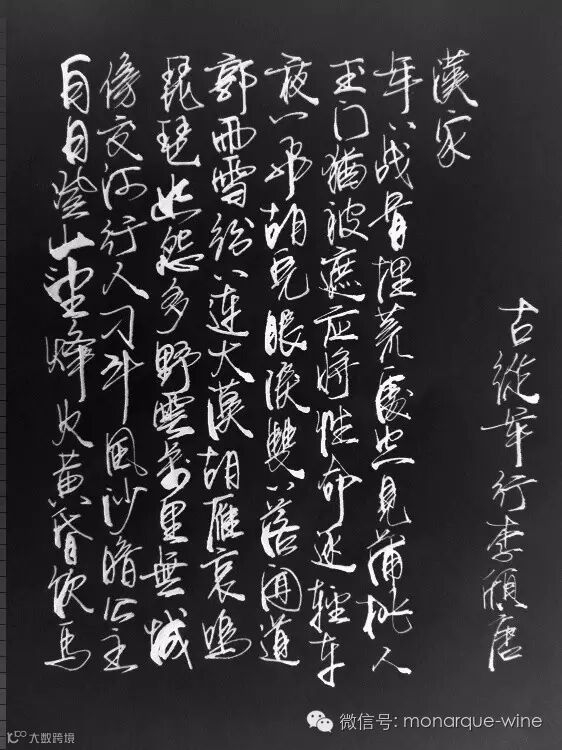 白日登山望烽火黄昏饮馬
傍交河行人刁斗風沙暗公主
琵琶幽怨多野雲萬里無城
郭雨雪紛紛連大漠胡雁哀鳴
夜夜飛胡兒眼淚雙雙落聞道
玉门猶被遮应將性命逐輕车
年年战骨埋荒外空見蒲桃入
漢家
古從軍行李頎唐
微信号: monarque-wine
大数跨境